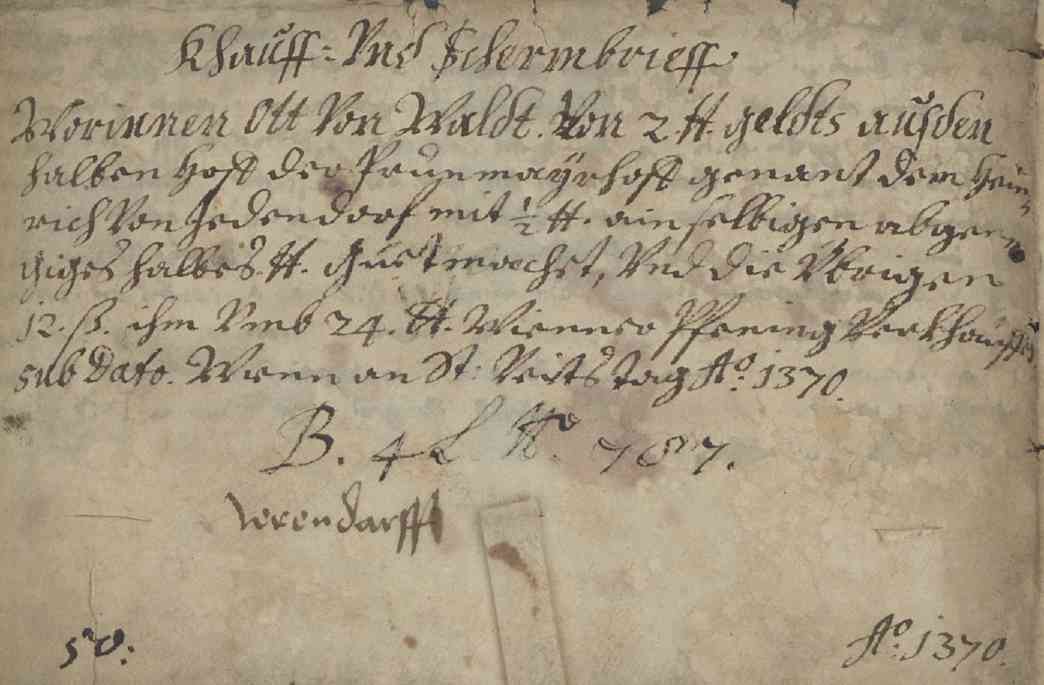 Khauff: Vnd Schermbrieff
Worinnen Ott Von Waldt. Von 2 ℔. geldts aus den
halben Hoff der Prunmayrhoff genant dem Hein-
rich Von Jedendorf mit ½ ℔. ain selbigen abgen-
giges halbes ℔. Guet machet, Vnd die Vbrigen
12. ß. ihm Vmb 24. ℔. Wienner Pfening Verkhauff
sub Dato. Wienn an St: Veitstag Ao: 1370.
B. 4 L No. 787.
50:
Ao: 1370.